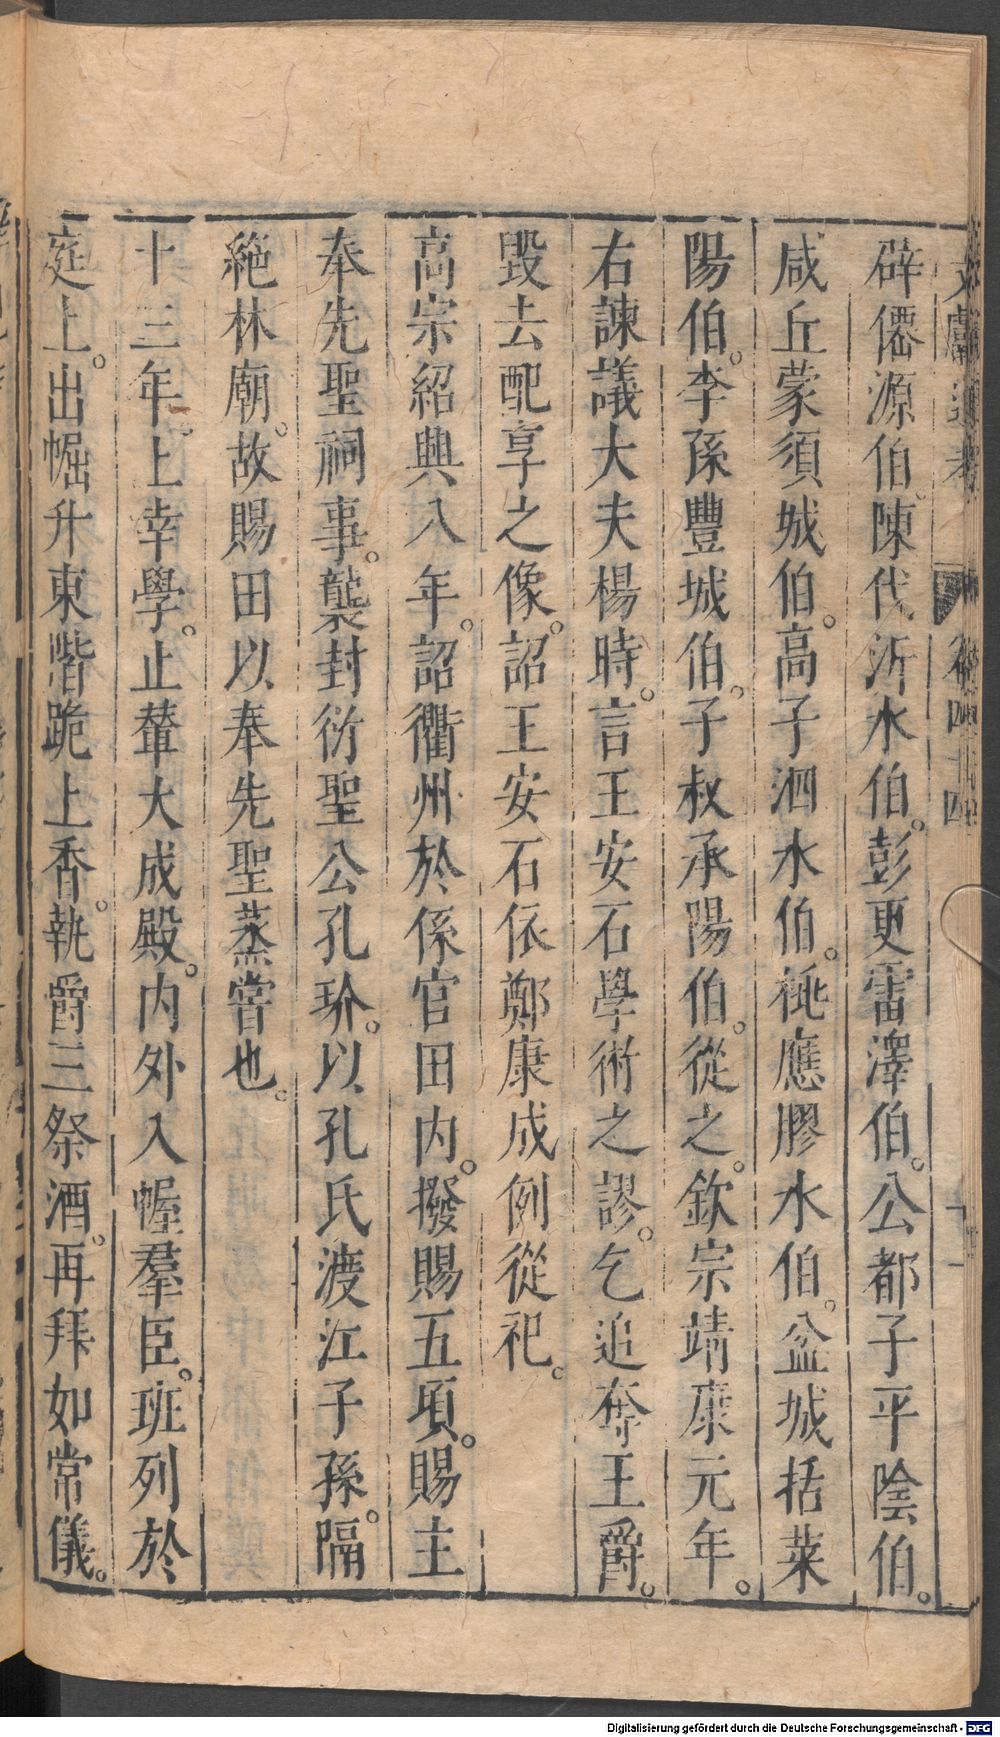 文獻通考 卷四十四
辟僊源伯。陳代沂水伯。彭更雷澤伯。公都子平陰伯。
咸丘蒙須城伯。高子泗水伯。桃應膠水伯。盆城括萊
陽伯。李孫豐城伯。子叔承陽伯。從之。欽宗靖康元年。
右諫議大夫楊時。言王安石學術之謬。乞追奪王爵。
毀去配享之像。詔王安石依鄭康成例從祀。
高宗紹興八年。詔衢州於係官田內。撥賜五項。賜主
奉先聖祠事。襲封衍聖公孔玠。以孔氏渡江子孫。隔
絕林廟。故賜田以奉先聖蒸嘗也。
十三年。上幸學。止輦大成殿。內外入幄羣臣。班列於
庭上。出幄升東階跪上香。執爵三祭酒。再拜如常儀。
Digitalisierung gefördert durch die Deutsche Forschungsgemeinschaft - DFG